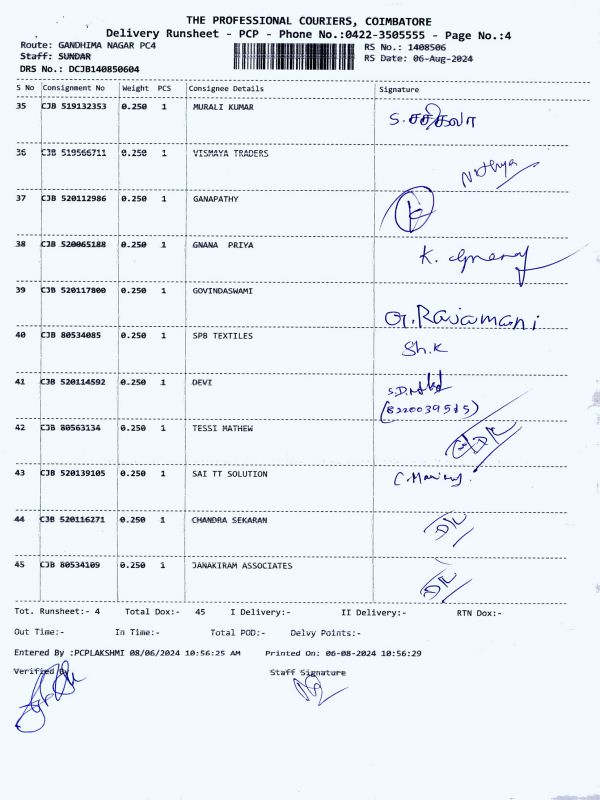 THE PROFESSIONAL COURIERS, COIMBATORE
Delivery Runsheet - PCP - Phone No.:0422-3505555 - Page No.:4
Route: GANDHIMA NAGAR PC4 RS No.: 1408506
Staff: SUNDAR RS Date: 06-Aug-2024
DRS No.: DCJB140850604
S No Consignment No Weight PCS Consignee Details Signature
35 CJB 519132353 0.250 1 MURALI KUMAR S. சசிகலா
36 CJB 519566711 0.250 1 VISMAYA TRADERS Nithya
37 CJB 520112986 0.250 1 GANAPATHY
38 CJB 520065188 0.250 1 GNANA PRIYA K.
39 CJB 520117800 0.250 1 GOVINDASWAMI G.Rajamani
40 CJB 80534085 0.250 1 SPB TEXTILES Sh.K
41 CJB 520114592 0.250 1 DEVI
42 CJB 80563134 0.250 1 TESSI MATHEW
43 CJB 520139105 0.250 1 SAI TT SOLUTION
44 CJB 520116271 0.250 1 CHANDRA SEKARAN
45 CJB 80534109 0.250 1 JANAKIRAM ASSOCIATES
Tot. Runsheet:- 4 Total Dox:- 45 I Delivery:- II Delivery:- RTN Dox:-
Out Time:- In Time:- Total POD:- Delvy Points:-
Entered By :PCPLAKSHMI 08/06/2024 10:56:25 AM Printed On: 06-08-2024 10:56:29
Verified By Staff Signature